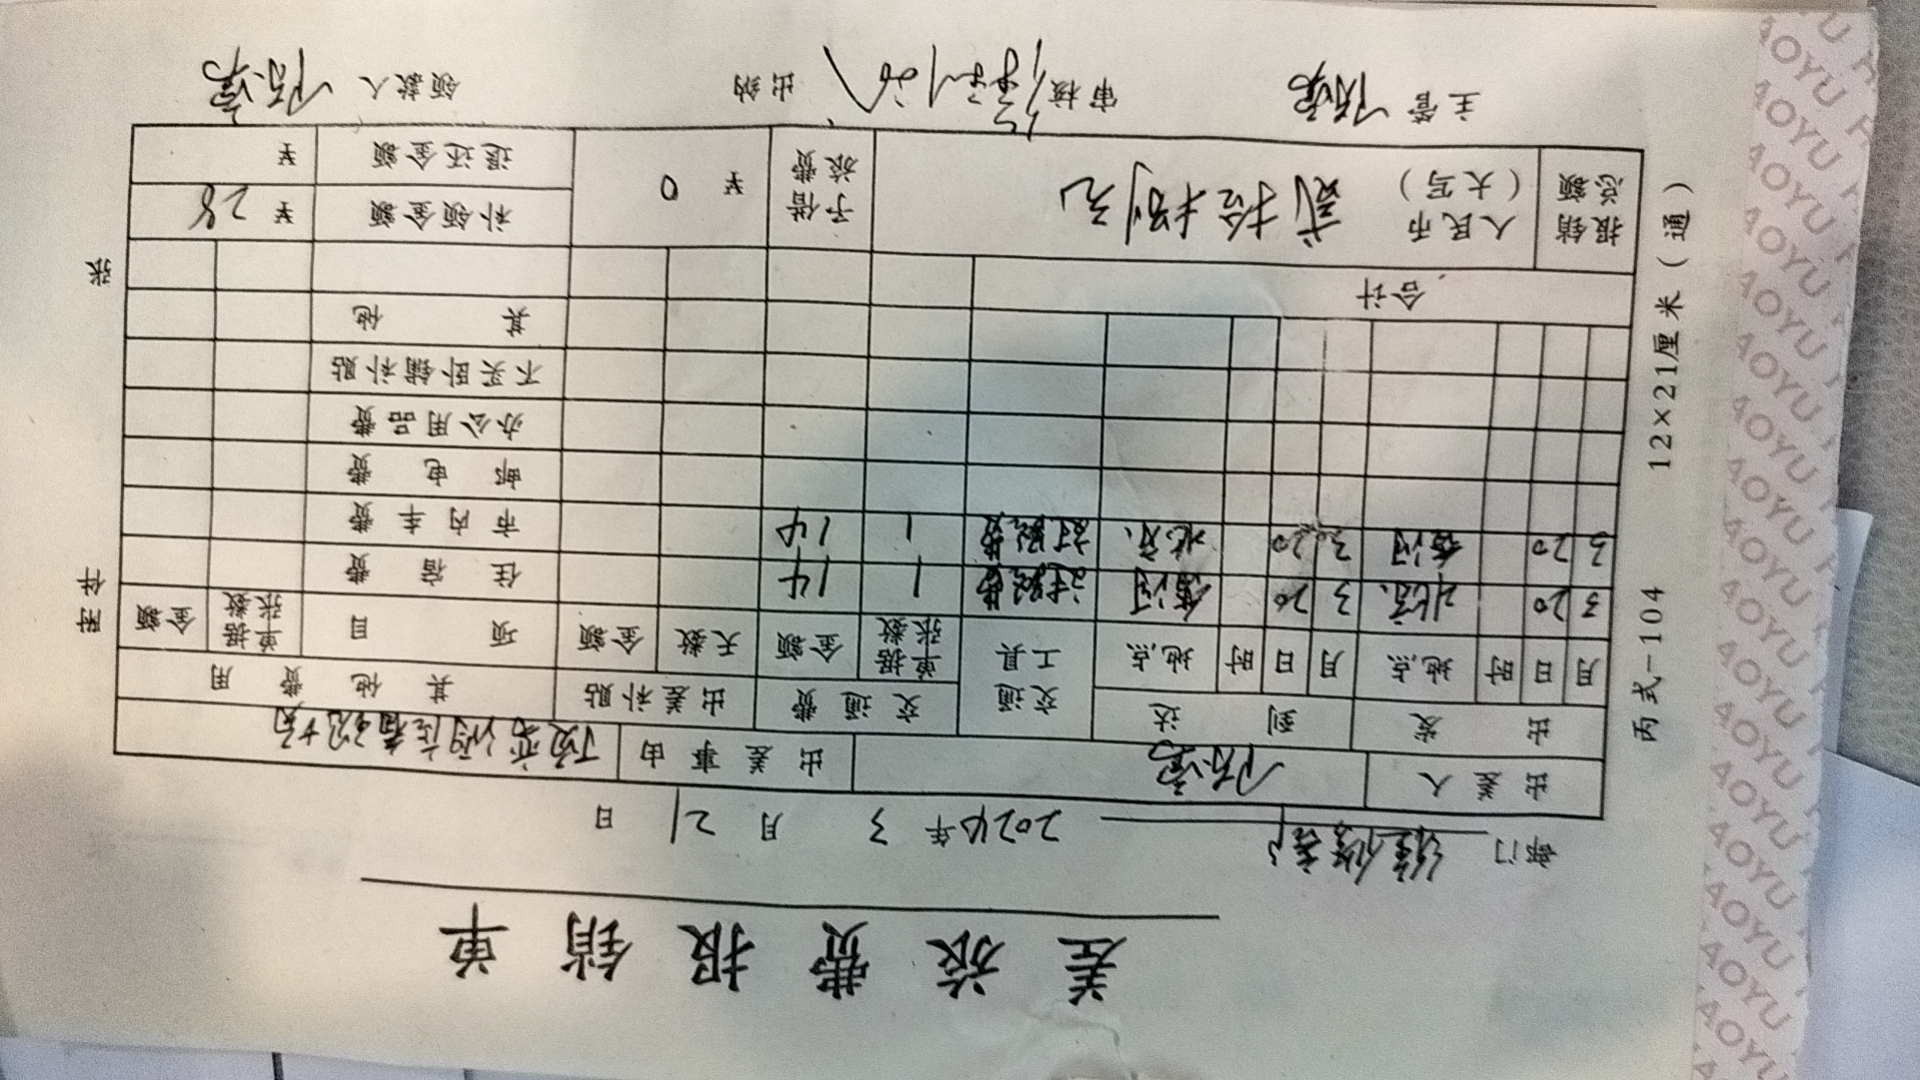 差旅费报销单
部门 维修部 2024年 3 月 21 日
出差人 陈富 出差事由
出发 到达 交通工具 交通费 出差补贴 其他费用
月 日 时 地点 月 日 时 地点 单据张数 金额 天数 金额 项目 单据张数 金额
3 20 北京 3 20 香河 过路费 1 14 住宿费
3 20 香河 3 20 北京 过路费 1 14 市内车费
邮电费
办公用品费
不买卧铺补贴
其他
合计
报销总额 人民币(大写) 贰拾捌元 予借旅费 ¥ 0 补领金额 ¥ 28
退还金额 ¥
主管 陈富 审核 出纳 领款人 陈富
附件 张
丙式-104 12×21厘米(通)
AOYU